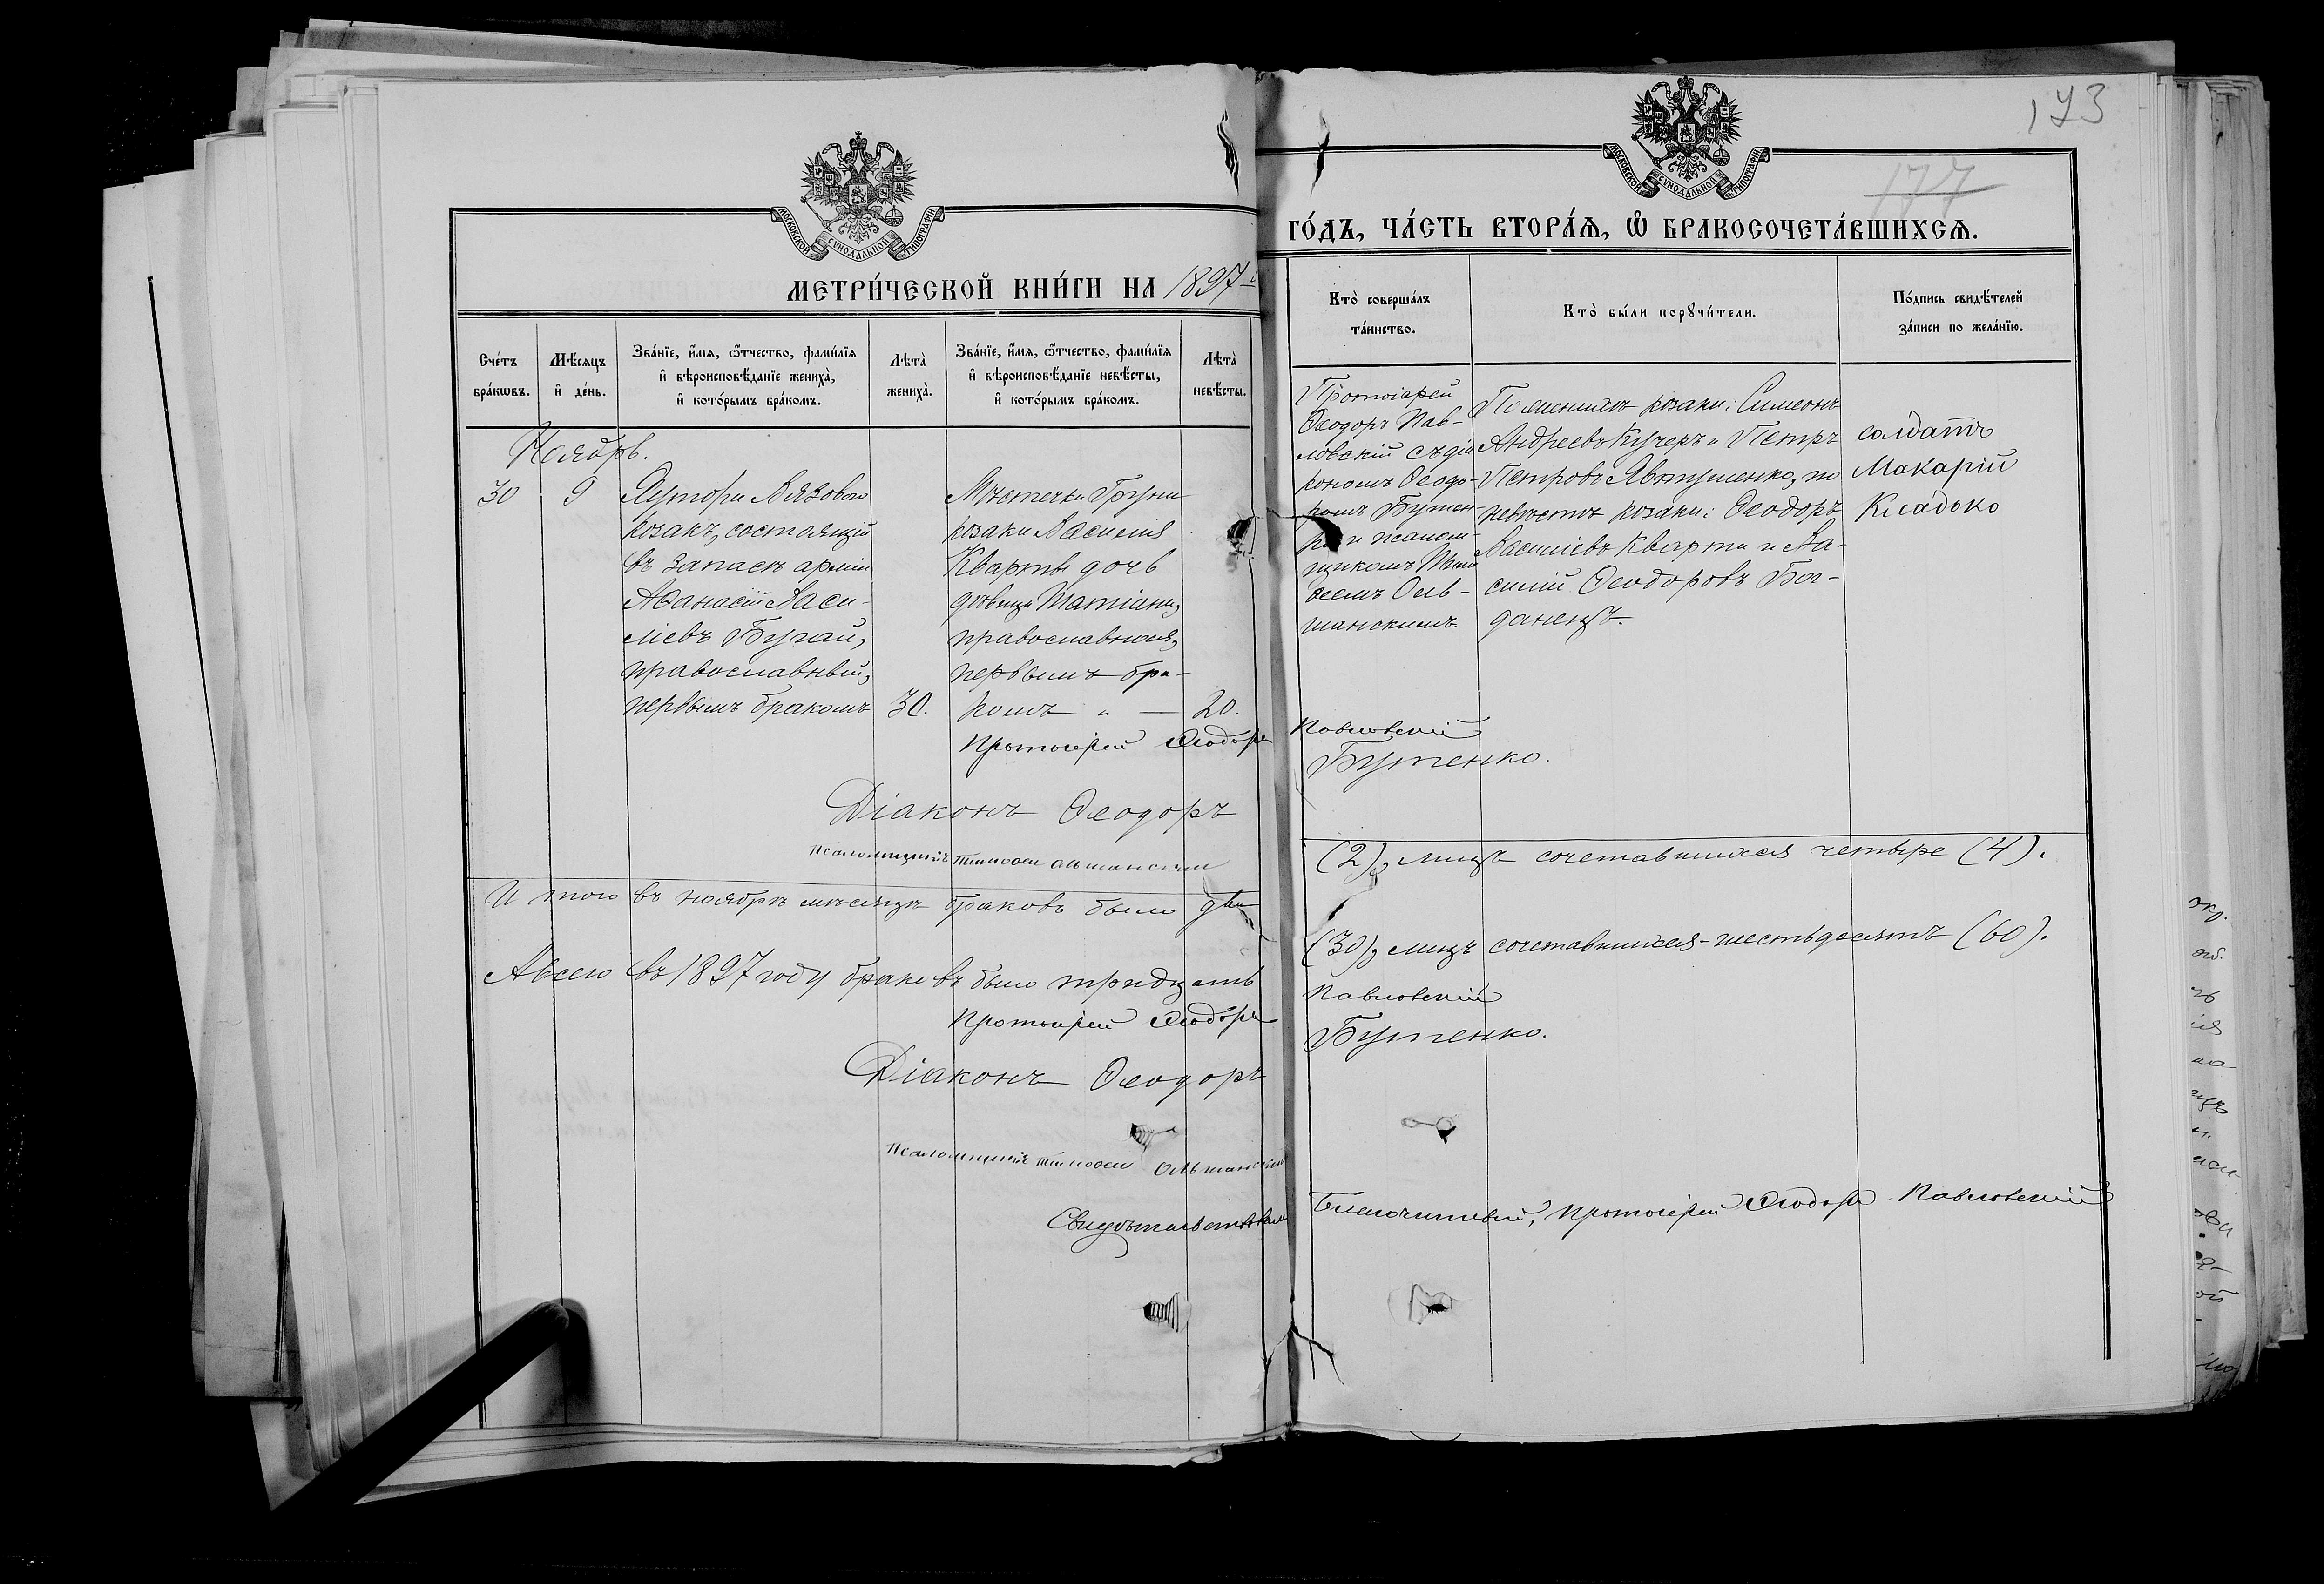 173
177
МОСКОВСКОЙ СѴНОДАЛЬНОЙ ТИПОГРАФІИ
МОСКОВСКОЙ СѴНОДАЛЬНОЙ ТИПОГРАФІИ
МЕТРИ́ЧЕСКОЙ КНИ́ГИ НА 1897
ГО́ДЪ, ЧА́СТЬ ВТОРА́Ѧ, Ѽ БРАКОСОЧЕТА́ВШИХСѦ.
Сче́тъ
бра́кѡвъ.
Мѣ́сяцъ
и҆ де́нь.
Зва́нїе, и҆́мѧ, ѻ҆́тчество, фами́лїѧ
и҆ вѣроисповѣ́данїе жениха̀,
и҆ кото́рымъ бра́комъ.
Лѣта̀
жениха̀.
Зва́нїе, и҆́мѧ, ѻ҆́тчество, фами́лїѧ
и҆ вѣроисповѣ́данїе невѣ́сты,
и҆ кото́рымъ бра́комъ.
Лѣта̀
невѣ́сты.
Кто̀ соверша́лъ
та́инство.
Кто̀ бы́ли порꙋчи́тели.
По́дпись свидѣ́телей
за́писи по жела́нїю.
Ноябрь.
30
9
Хутора Вязоваго
козакъ, состоящій
въ запасѣ арміи
Аѳанасій Васи-
ліевъ Бугай,
православный,
первымъ бракомъ
30.
Мѣстечка Груни
козака Василія
Кварты дочь
дѣвица Татіана,
православная,
первымъ бра-
комъ " —
20.
Протоіерей
Ѳеодоръ Пав-
ловскій съ діа
кономъ Ѳеодо-
ромъ Бутен-
и псалом-
щикомъ Тимо
ѳеемъ Оль-
шанскимъ
По женихѣ козаки: Симеонъ
Андреевъ Кучеръ и Петръ
Петровъ Явтушенко, по
невѣстѣ козаки: Ѳеодоръ
Василіевъ Кварта и Ва-
силій Ѳеодоровъ Бог-
данецъ.
солдатъ
Макарій
Кладько
Протоіерей Ѳеодоръ Павловскій
Діаконъ Ѳеодоръ Бутенко.
Псаломщикъ Тимоѳей Ольшанскій
Итого въ ноябрѣ мѣсяцѣ браковъ было два (2), лицъ сочетавшихся четыре (4).
А всего въ 1897 году браковъ было тридцать (30), лицъ сочетавшихся - шестьдесятъ (60).
Протоіерей Ѳеодоръ Павловскій
Діаконъ Ѳеодоръ Бутенко.
Псаломщикъ Тимоѳей Ольшанскій
Свидѣтельствовалъ Благочинный, Протоіерей Ѳеодоръ Павловскій